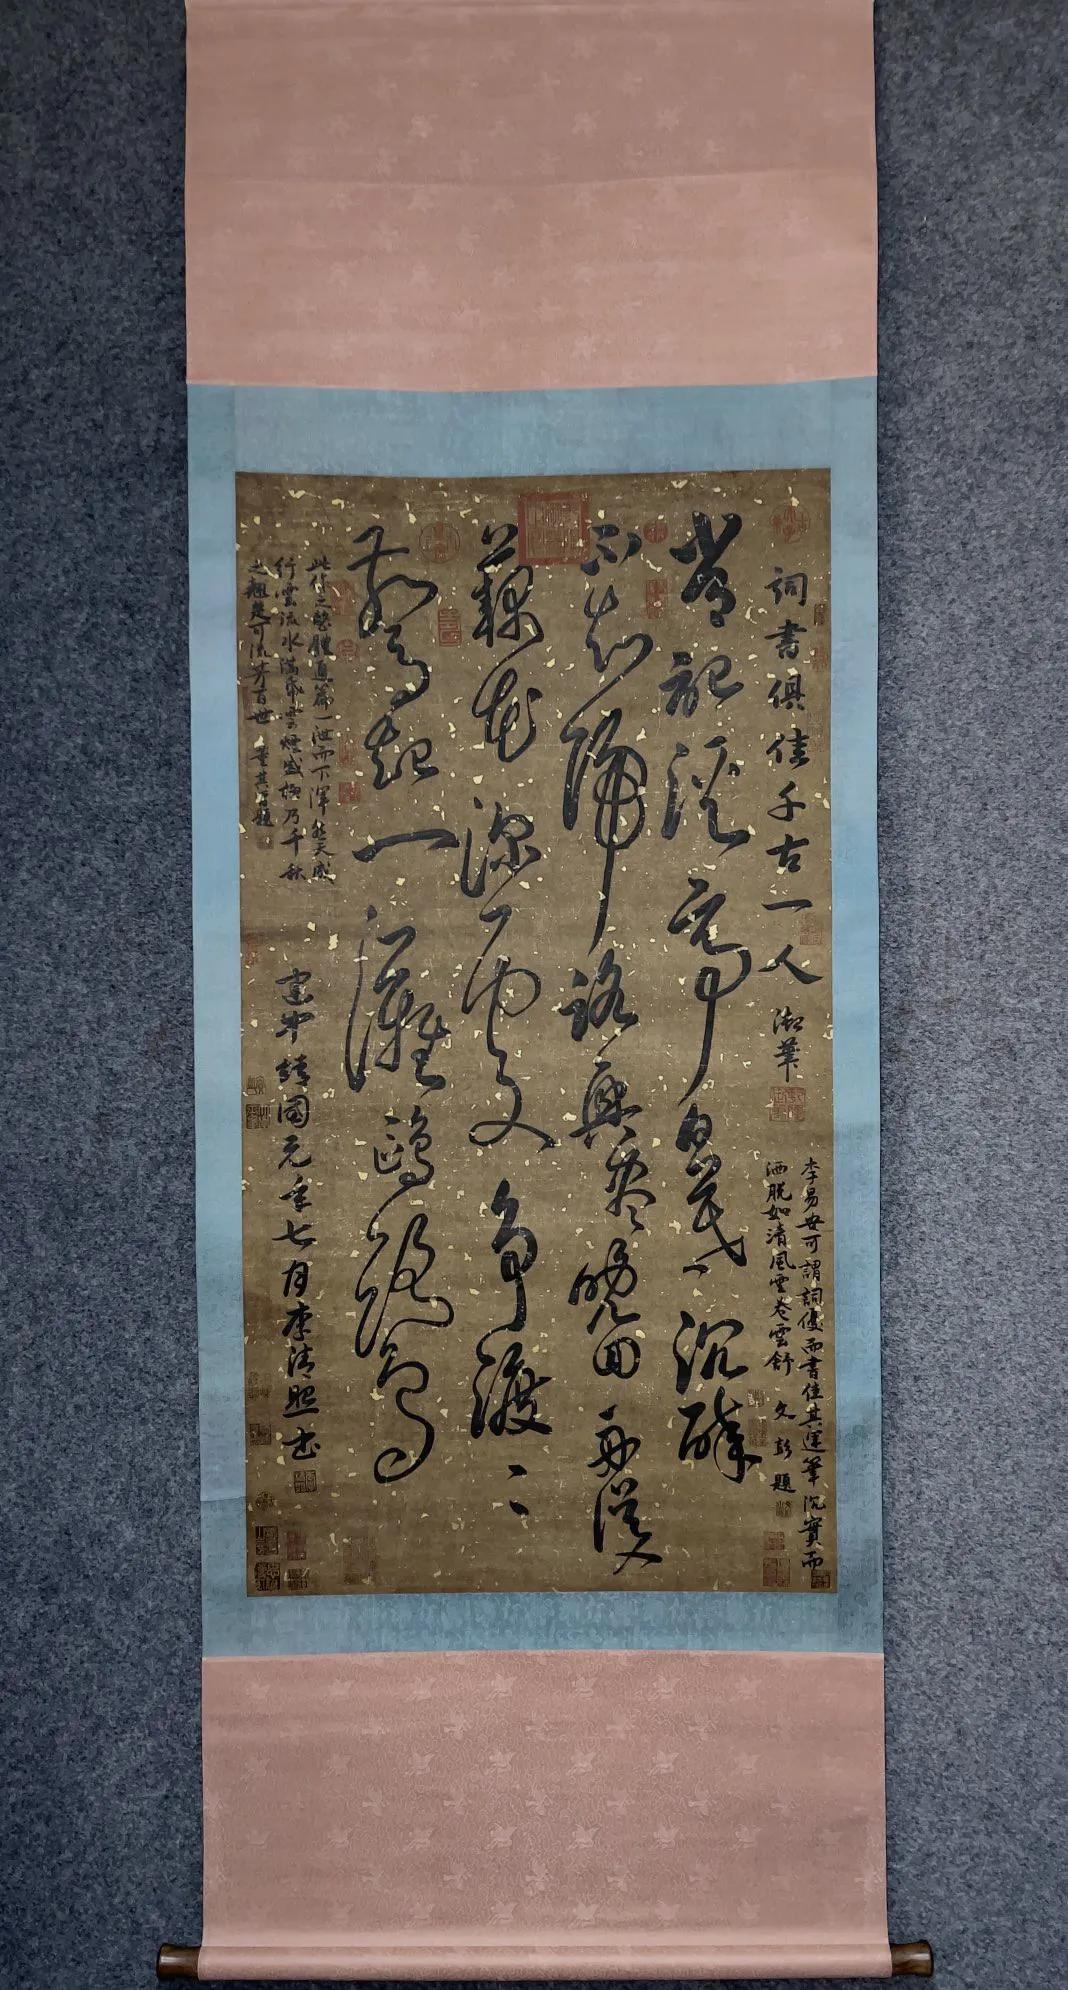 詞書俱佳千古一人 淑華
李易安可謂詞優而書佳其運筆沉實而
洒脫如清風雲卷雲舒 文彭題
嘗記溪亭日暮沉醉
不知歸路興盡晚回舟誤
藕花深一爭渡二
驚起一灘鷗鷺
此作之整體直篇一泄而下渾然天成
行雲流水滿紙雲煙盛極乃千秋
之翹楚可流芳百世 董其昌題
建中靖國元年七月李清照書